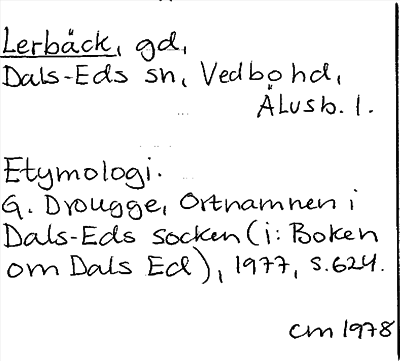 Lerbäck, gd,
Dals-Eds sn, Vedbo hd,
Älvsb. l.
Etymologi.
G. Drougge, Ortnamnen i
Dals-Eds socken (i: Boken
om Dals Ed), 1977, s. 624.
cm 1978